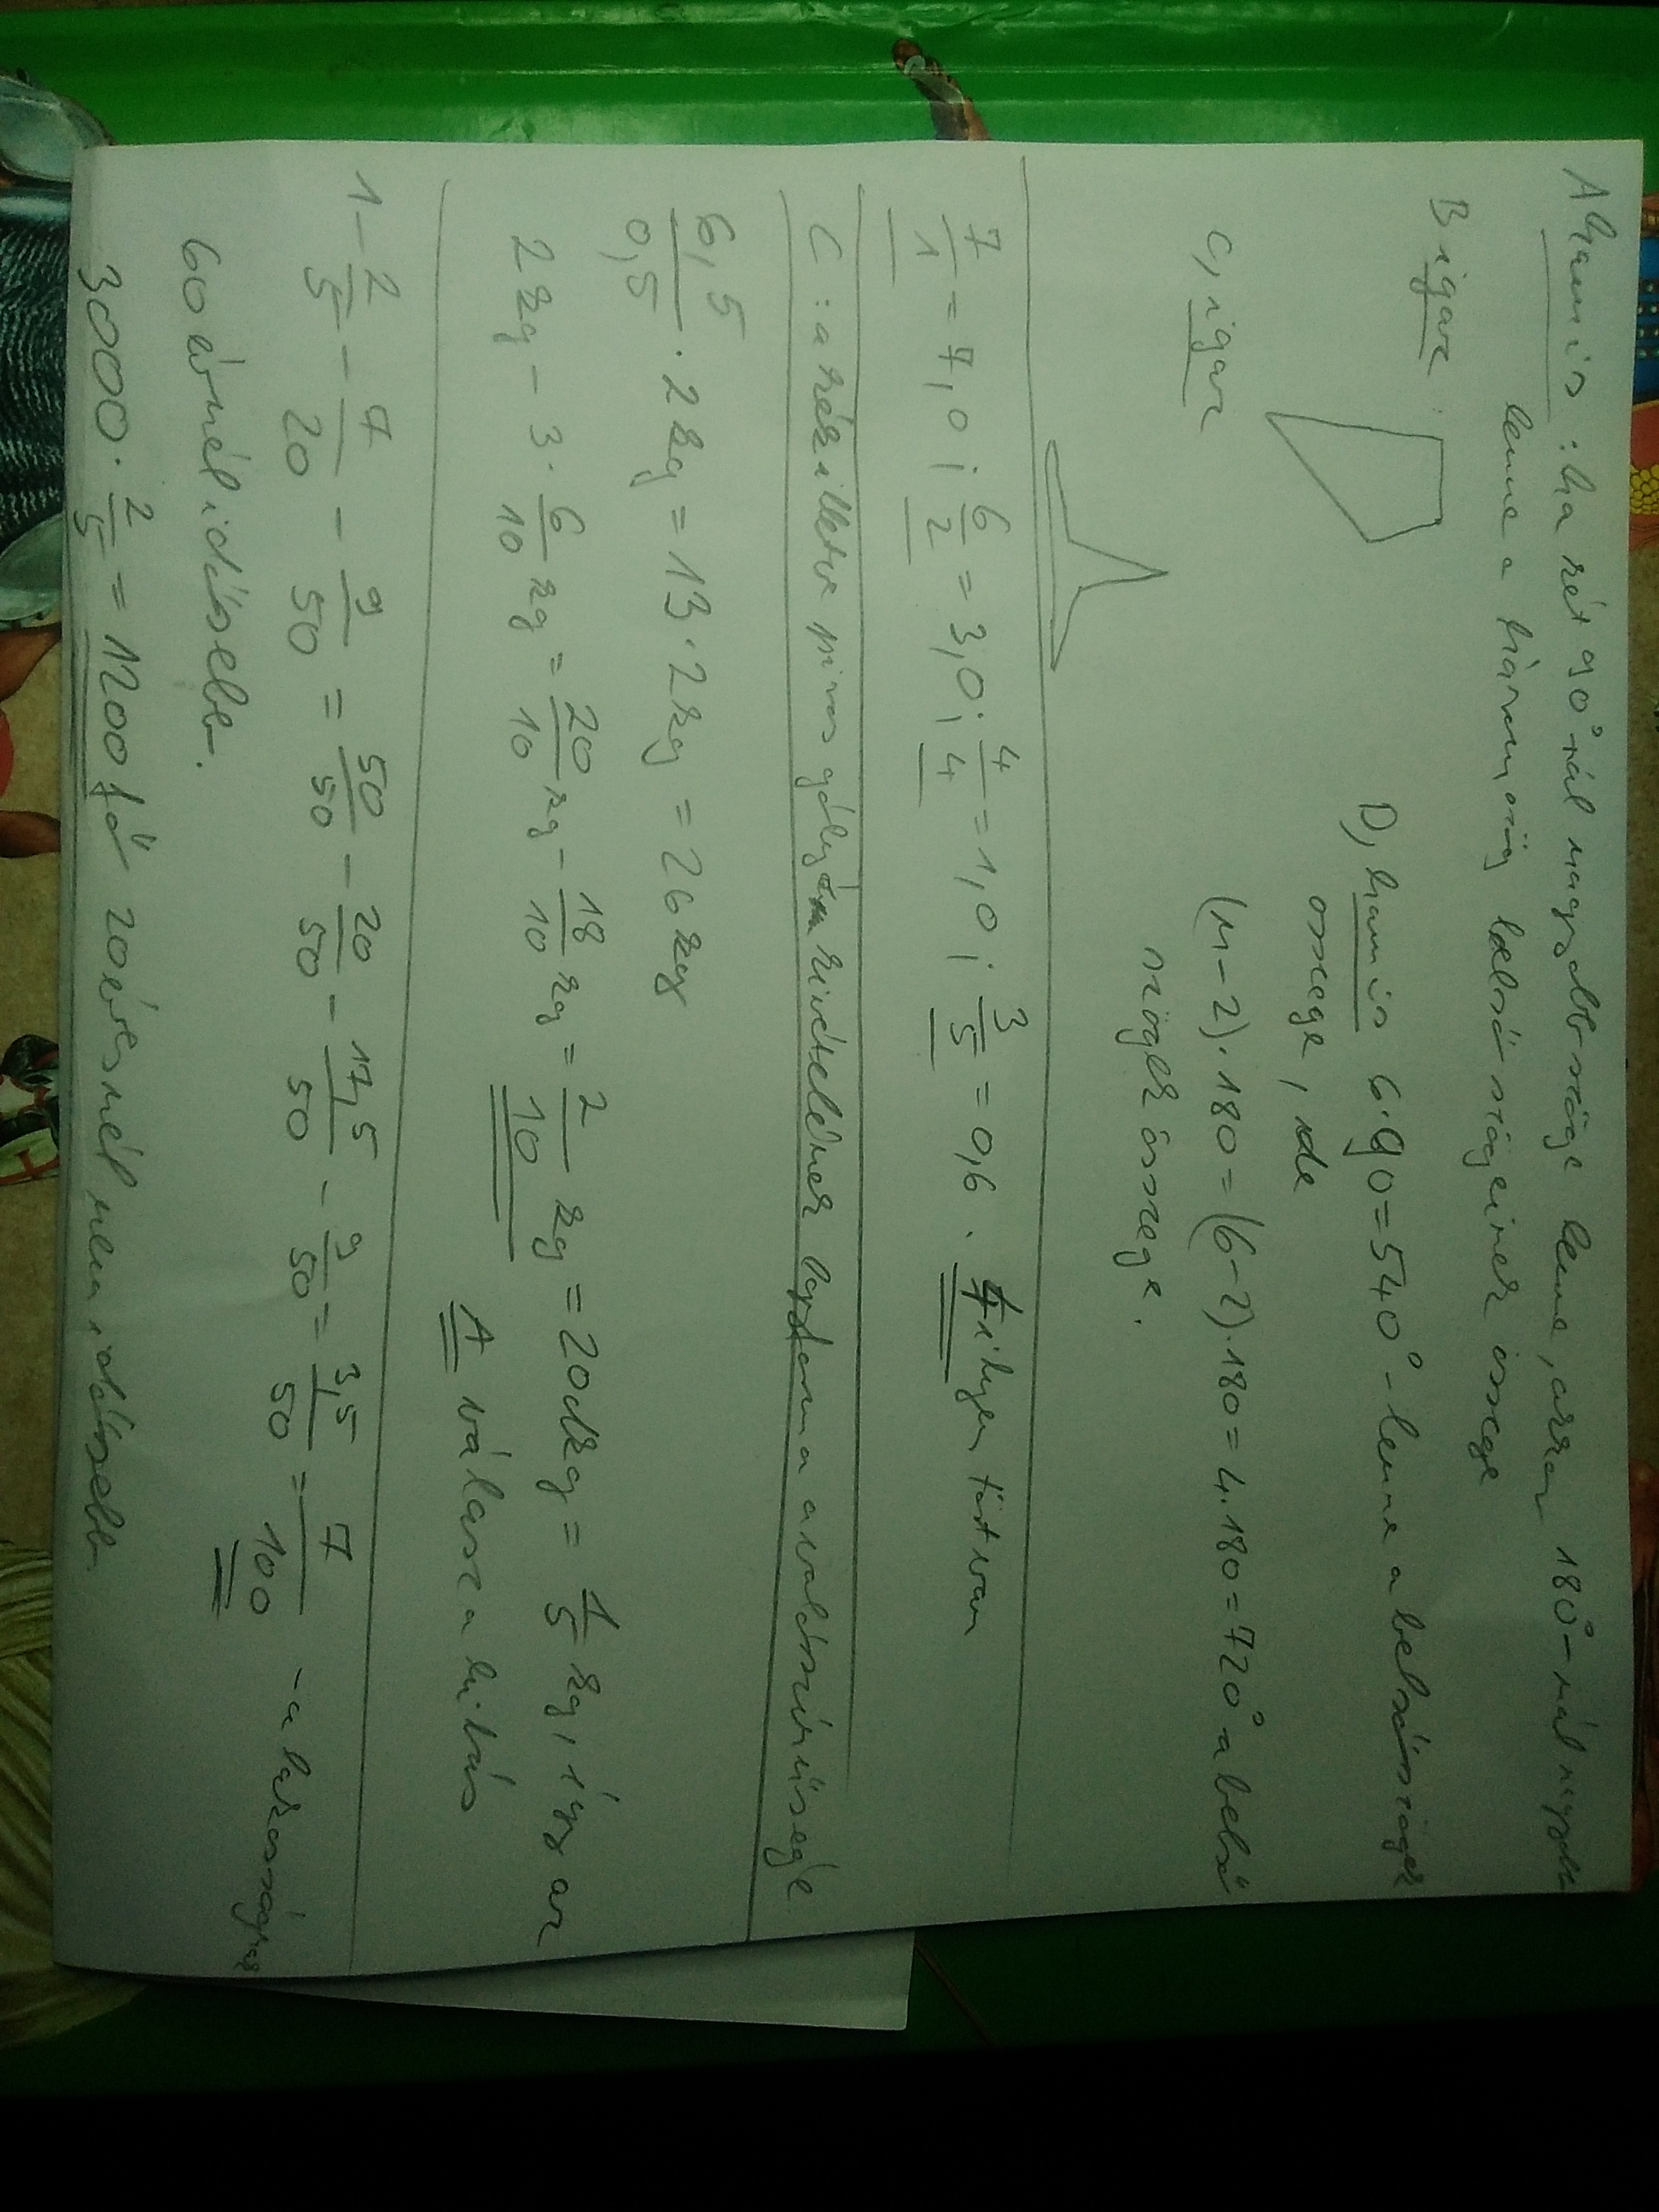 A hamis: ha két 90°-nál nagyobb szöge lenne, azaz 180°-nál nagyobb
lenne a háromszög belső szögeinek összege
B igaz:
D, hamis 6·90=540°-lenne a belső szögek
összege, de
C, igaz
(n-2)·180=(6-2)·180=4·180=720° a belső
szögek összege.
7/1 = 7,0; 6/2 = 3,0; 4/4 = 1,0; 3/5 = 0,6. 4 ilyen tört van
C: a kék illetve piros gólyám kivételének ugyanannyi a valószínűsége
6,5/0,5 · 2kg = 13·2kg = 26kg
2kg - 3·6/10 kg = 20/10 kg - 18/10 kg = 2/10 kg = 20dkg = 1/5 kg, így az
A válasz a hibás
1 - 2/5 - 7/20 - 9/50 = 50/50 - 20/50 - 17,5/50 - 9/50 = 3,5/50 = 7/100 - a lakosságnak
60 évnél idősebb.
3000 · 2/5 = 1200 fő 20 évesnél nem idősebb